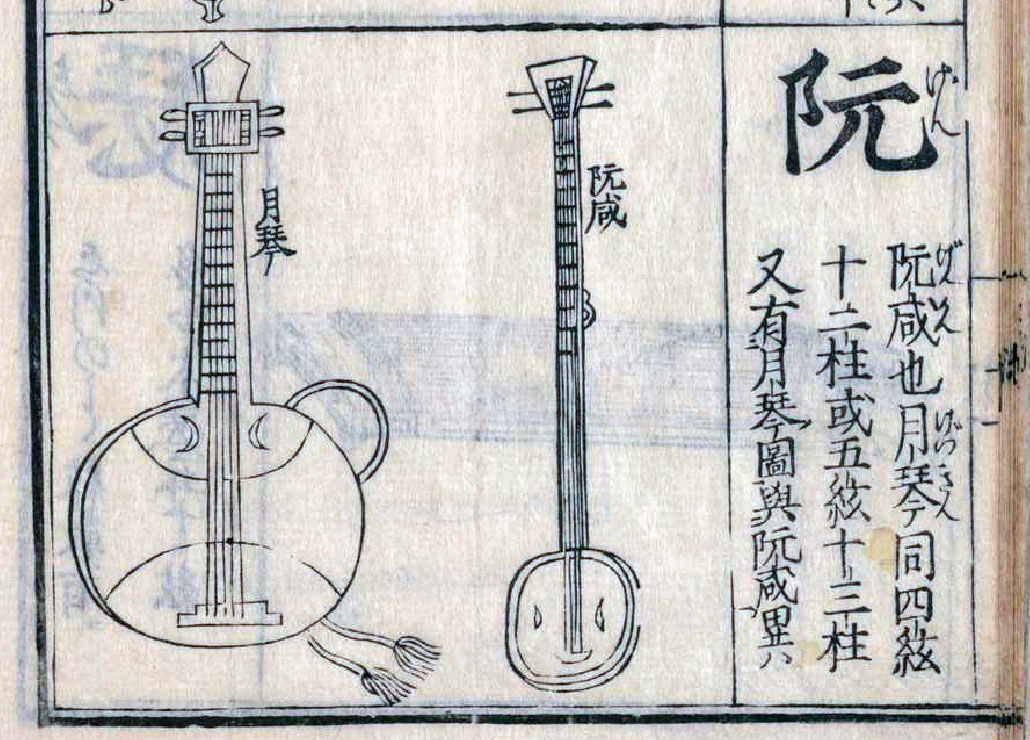 阮
げん
阮咸也月琴同四絃
げんかん
げつきん
十二柱或五絃十三柱
又有月琴圖與阮咸異
阮咸
月琴